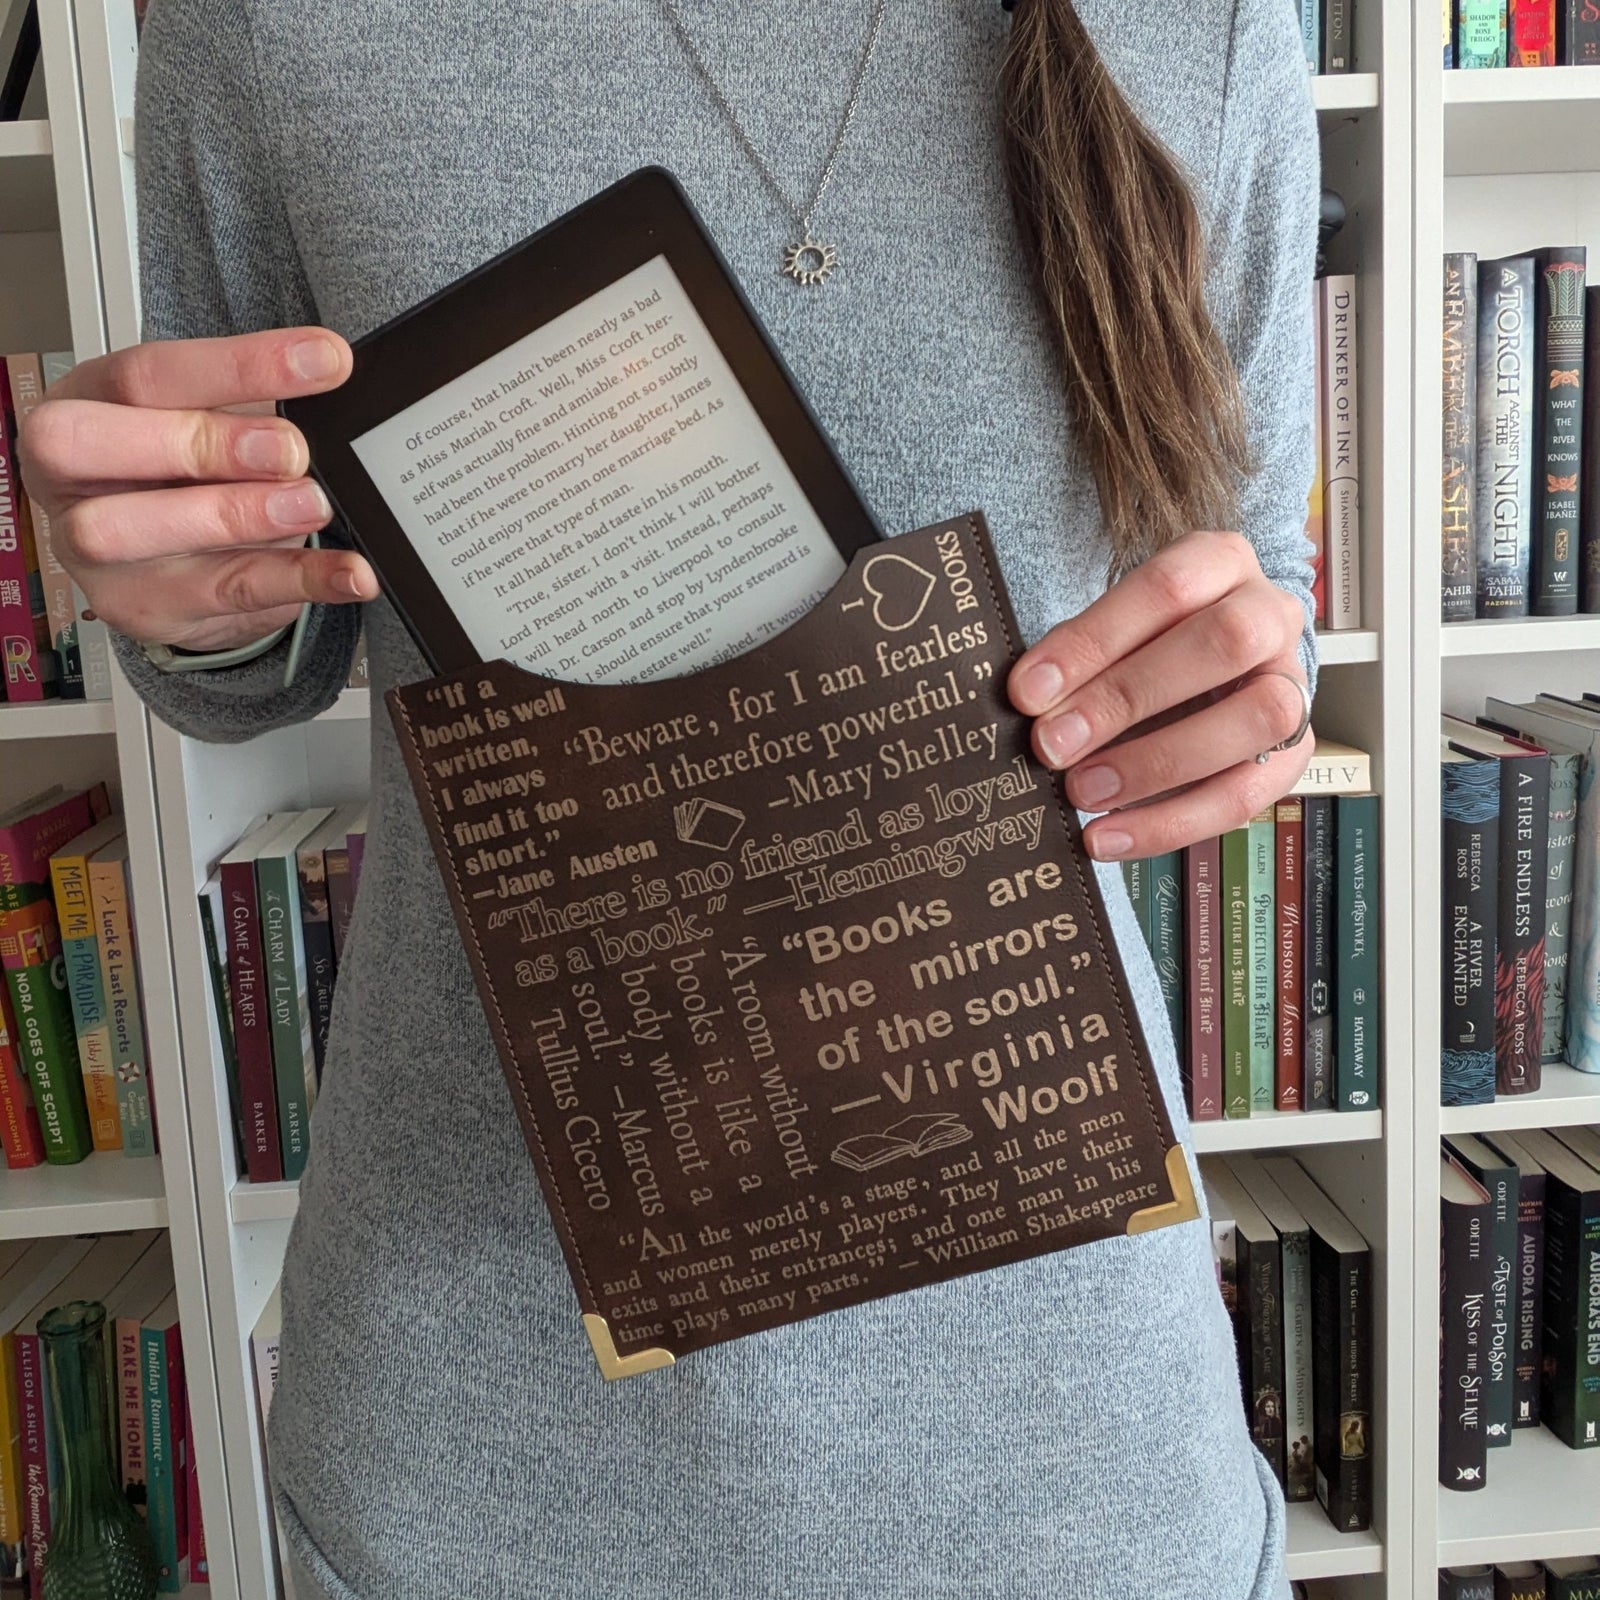 Of course, that hadn't been nearly as bad
as Miss Mariah Croft. Well, Miss Croft her-
self was actually fine and amiable. Mrs. Croft
had been the problem. Hinting not so subtly
that if he were to marry her daughter, James
could enjoy more than one marriage bed. As
if he were that type of man.
It all had left a bad taste in his mouth.
"True, sister. I don't think I will bother
Lord Preston with a visit. Instead, perhaps
I will head north to Liverpool to consult
with Dr. Carson and stop by Lyndenbrooke
I should ensure that your steward is
he estate well."
she sighed. "It would b
I
BOOKS
“If a
book is well
written,
I always
find it too
short.”
—Jane Austen
“Beware, for I am fearless
and therefore powerful.”
–Mary Shelley
“There is no friend as loyal
as a book.” —Hemingway
“A room without
books is like a
body without a
soul.” –Marcus
Tullius Cicero
“Books are
the mirrors
of the soul.”
—Virginia
Woolf
“All the world’s a stage, and all the men
and women merely players. They have their
exits and their entrances; and one man in his
time plays many parts.” — William Shakespeare
SHADOW
AND
BONE
TRILOGY
DRINKER OF INK
SHANNON CASTLETON
AN EMBER IN THE ASHES
TAHIR
A TORCH AGAINST THE NIGHT
SABAA TAHIR
RAZORBILL
WHAT
THE
RIVER
KNOWS
ISABEL
IBAÑEZ
CINDY STEEL
MEET ME in PARADISE
Libby Hubscher
Luck & Last Resorts
Sarah Grunder Ruiz
NORA GOES OFF SCRIPT
ANNABEL MONAGHAN
A GAME of HEARTS
BARKER
A CHARM of A LADY
BARKER
WALKER
Lakeshire Park
THE MATCHMAKER'S LONELY HEART
ALLEN
TO CAPTURE HIS HEART
ALLEN
ALLEN
PROTECTING HER HEART
WRIGHT
WINDSONG MANOR
THE RECLUSE of WOLFETON HOUSE
STOCKTON
IN THE WAVES of TRISTWICK
HATHAWAY
REBECCA ROSS
A RIVER ENCHANTED
A FIRE ENDLESS
REBECCA ROSS
ALLISON ASHLEY
the Roommate Pact
TAKE ME HOME
Holiday Romance
THE GIRL from THE HIDDEN FOREST
ODETTE
KISS OF THE SELKIE
ODETTE
A TASTE of POISON
AURORA RISING
AURORA'S END